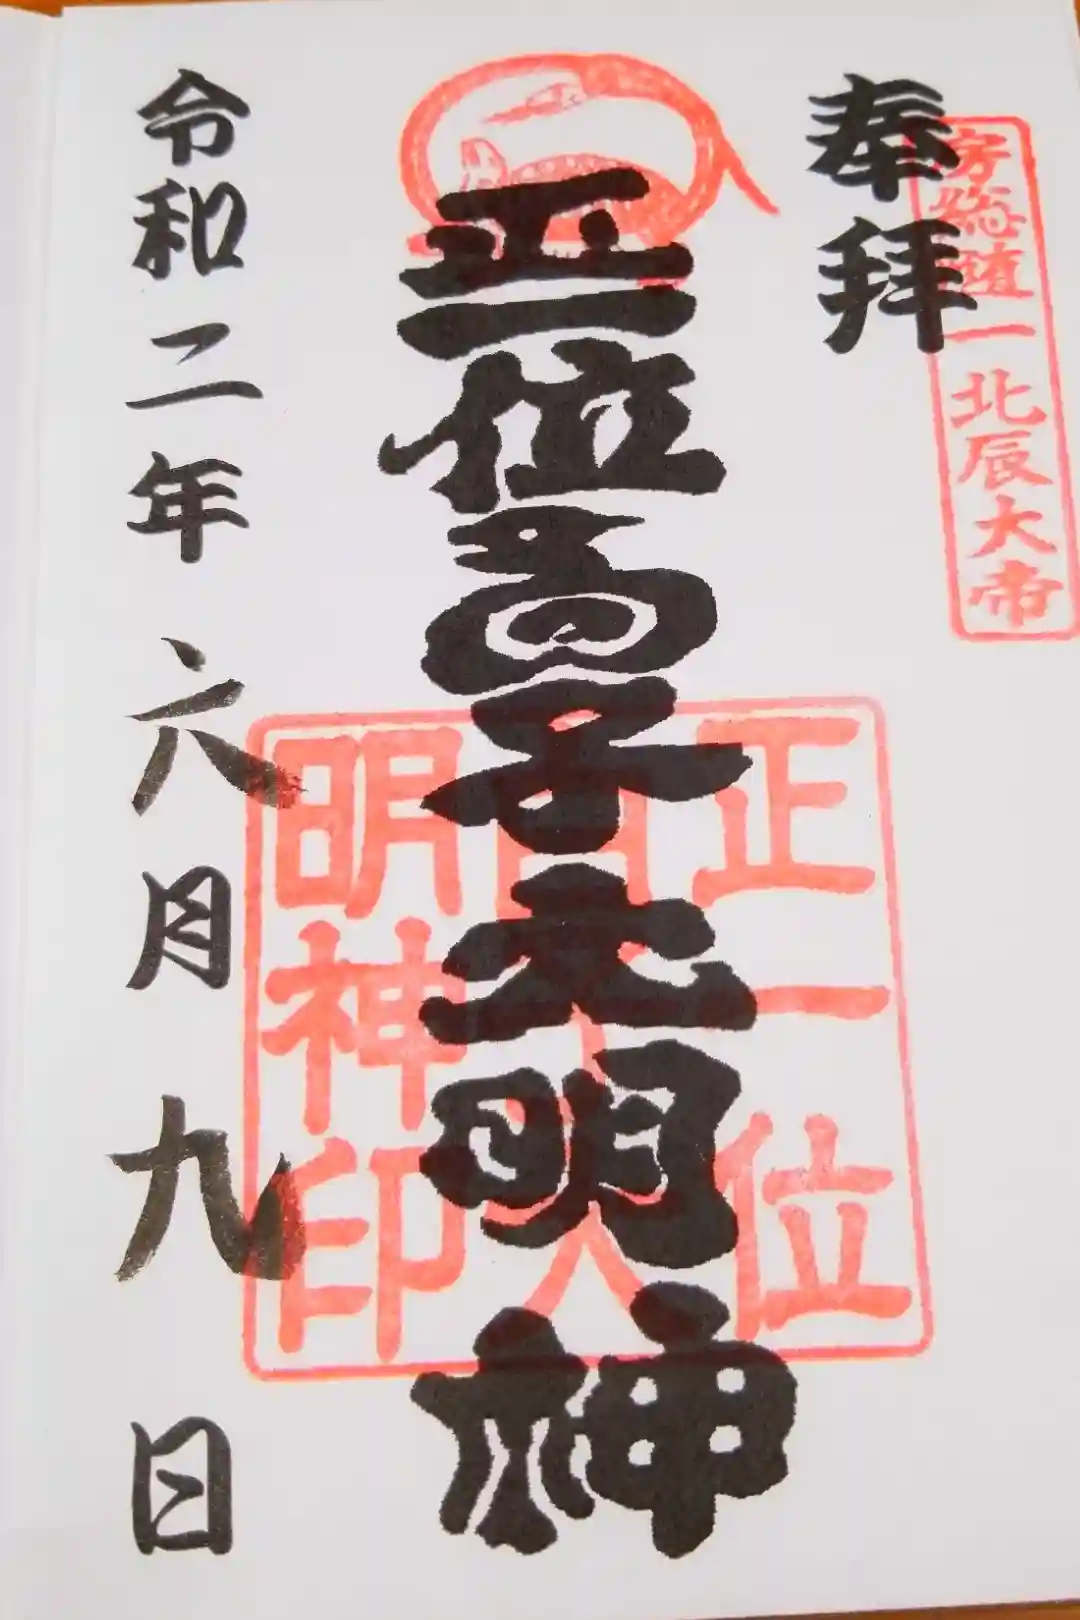 奉拝
房総随一 北辰大帝
正一位白子大明神
正一位
白子大
明神印
令和二年六月九日